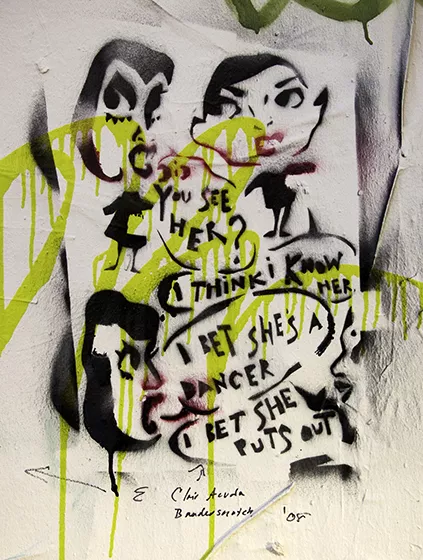 DiD
YOU SEE
HER?
I THINK i KNOW
HER.
I BET SHE'S A
DANCER
I BET SHE
PUTS OUT
Bandersnatch '08